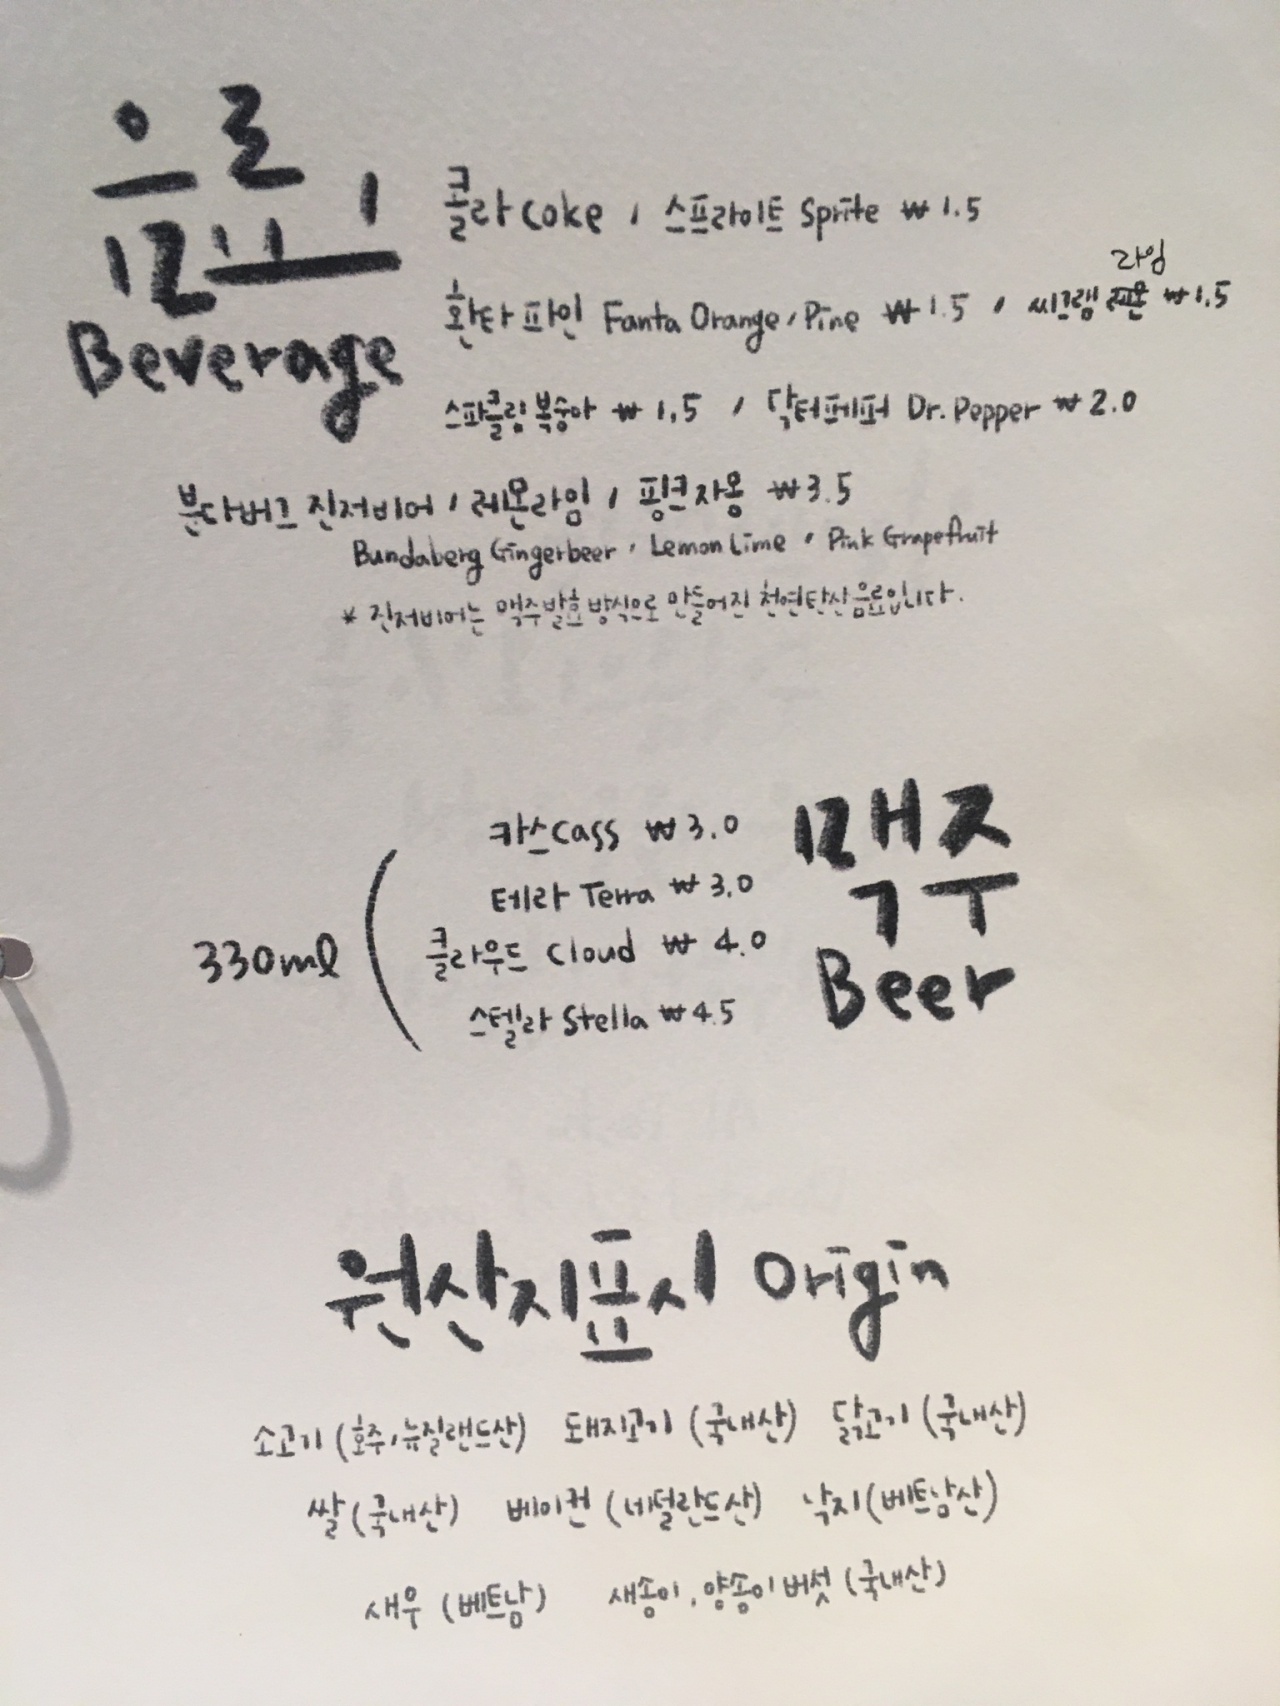 음료
Beverage
콜라 Coke / 스프라이트 Sprite ₩1.5
라임
환타 파인 Fanta Orange/Pine ₩1.5 / 씨그램 레몬 ₩1.5
스파클링복숭아 ₩1.5 / 닥터페퍼 Dr. Pepper ₩2.0
분다버그 진저비어 / 레몬라임 / 핑크자몽 ₩3.5
Bundaberg Gingerbeer / Lemon Lime / Pink Grapefruit
* 진저비어는 맥주발효방식으로 만들어진 천연탄산음료입니다.
맥주
Beer
330ml
카스 Cass ₩3.0
테라 Terra ₩3.0
클라우드 Cloud ₩4.0
스텔라 Stella ₩4.5
원산지표시 Origin
소고기 (호주/뉴질랜드산) 돼지고기 (국내산) 닭고기 (국내산)
쌀 (국내산) 베이컨 (네덜란드산) 낙지 (베트남산)
새우 (베트남) 새송이, 양송이버섯 (국내산)